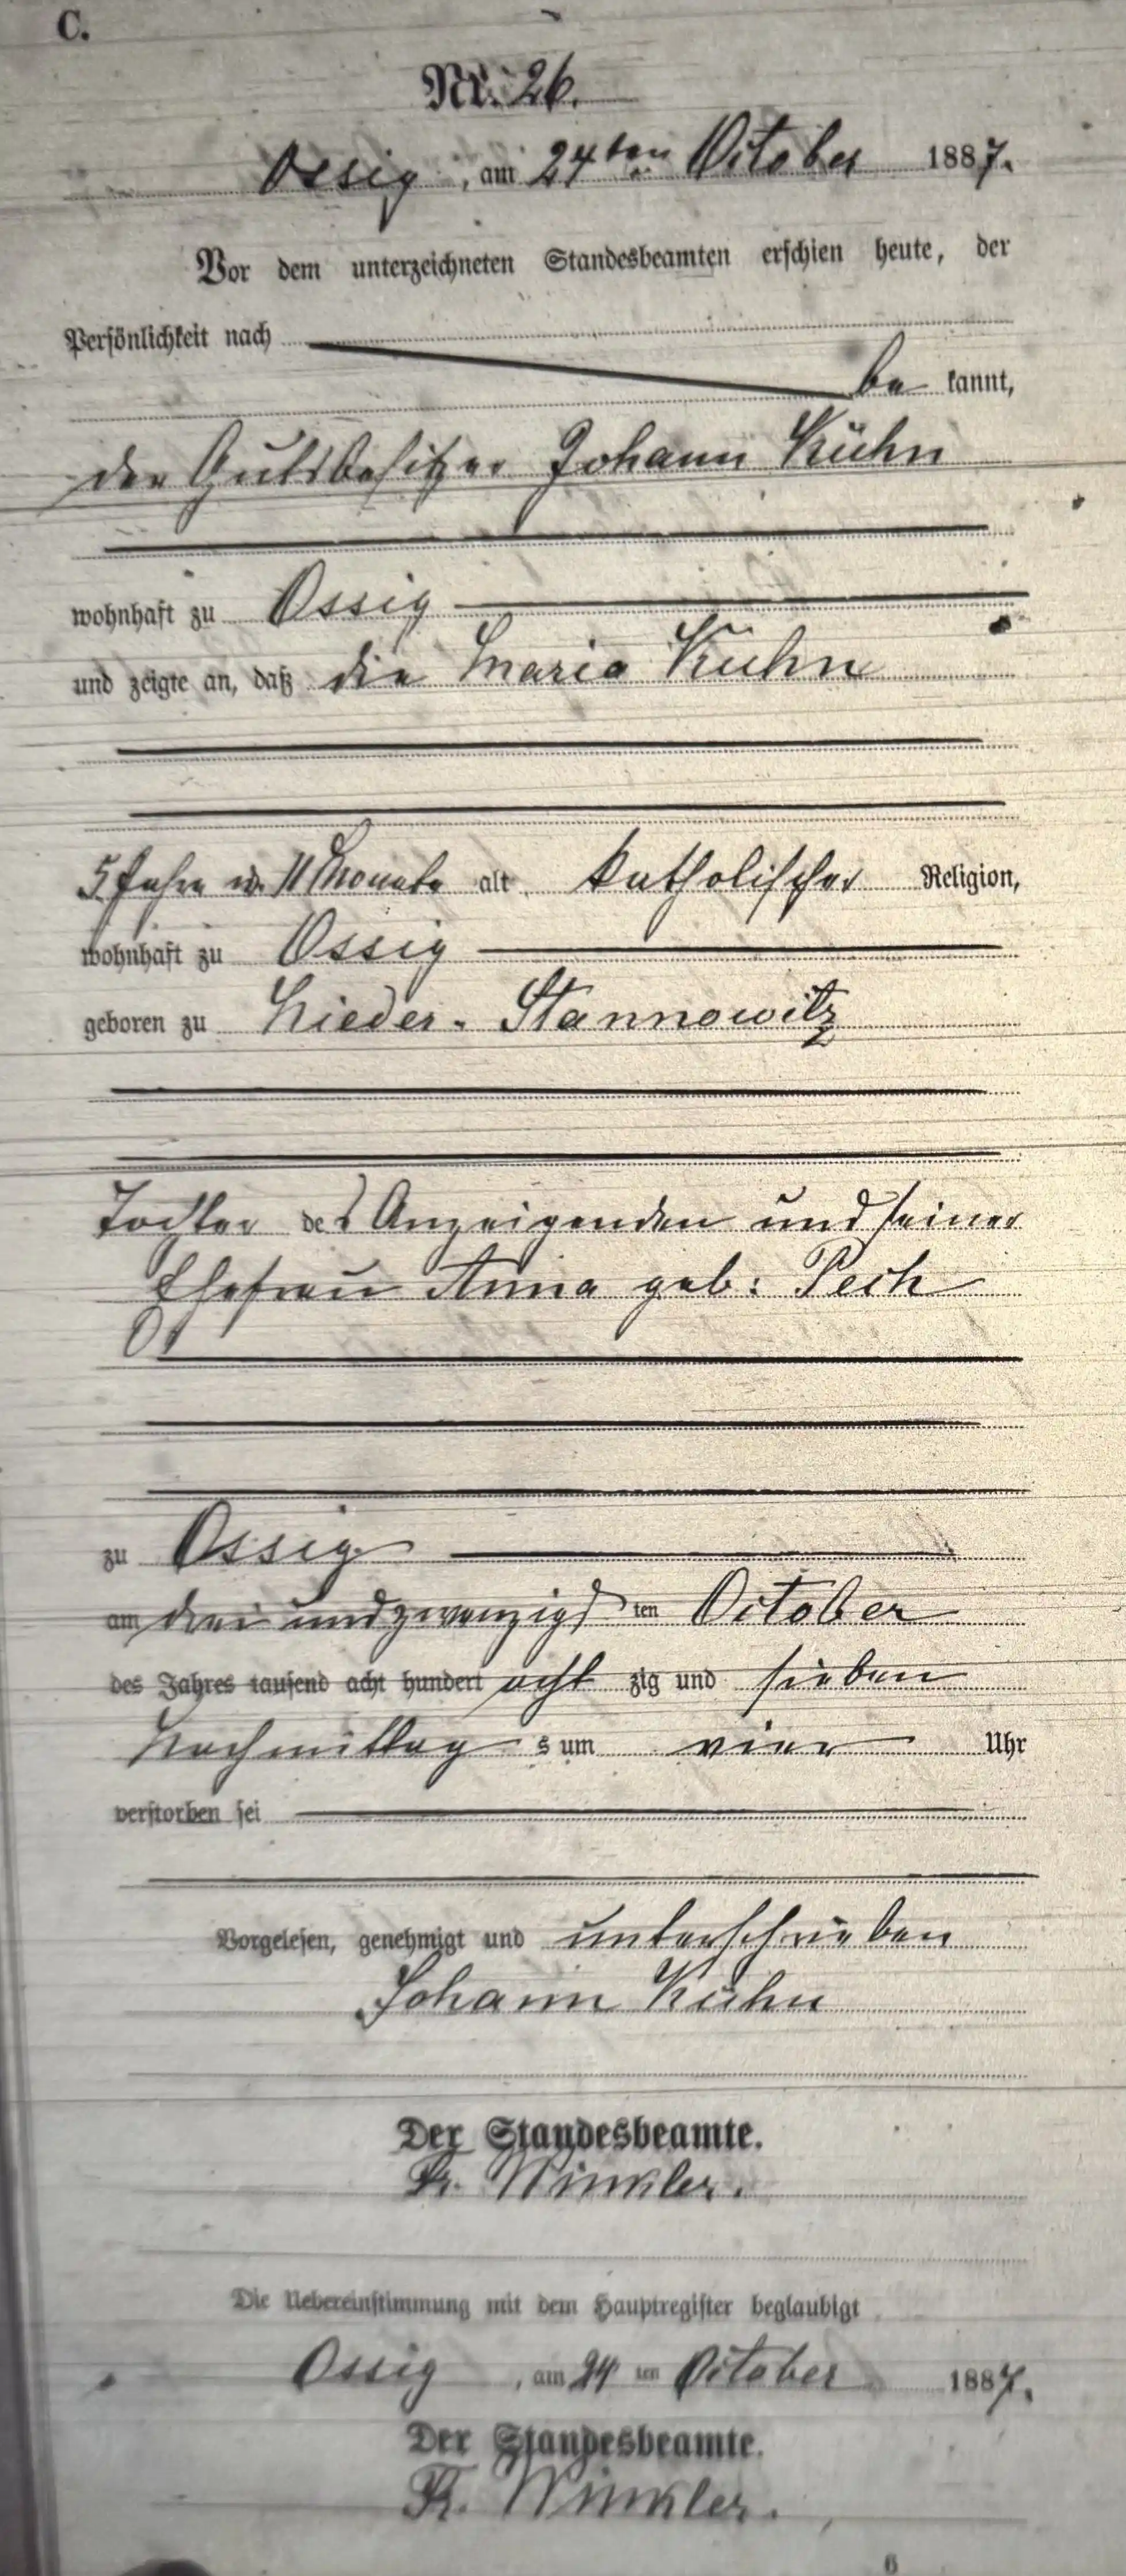 C.
Nr. 26.
Ossig, am 24ten October 1887.
Vor dem unterzeichneten Standesbeamten erschien heute, der
Persönlichkeit nach
be kannt,
der Gutsbesitzer Johann Kühn
wohnhaft zu Ossig
und zeigte an, daß die Maria Kühn
5 Jahre u. 11 Monate alt, katholischer Religion,
wohnhaft zu Ossig
geboren zu Nieder-Stannowitz
Tochter des Anzeigenden und seiner
Ehefrau Anna geb: Pech
zu Ossig
am drei und zwanzigsten October
des Jahres tausend acht hundert acht zig und sieben
Nachmittag s um vier Uhr
verstorben sei
Vorgelesen, genehmigt und unterschrieben
Johann Kühn
Der Standesbeamte.
Fr. Winkler.
Die Uebereinstimmung mit dem Hauptregister beglaubigt
Ossig, am 24 ten October 1887.
Der Standesbeamte.
Fr. Winkler.
6